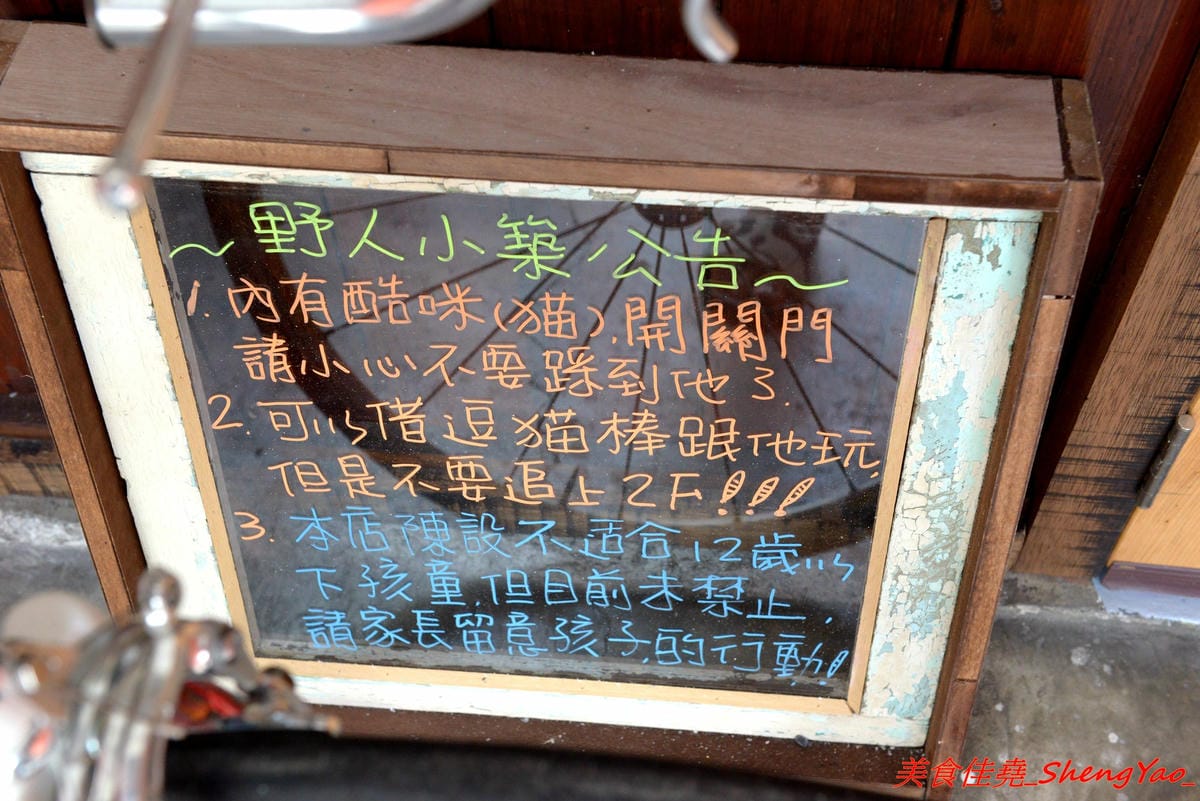 ~野人小築 公告~
1. 內有酷咪(猫),開關門
請小心不要踩到他3.
2. 可以借逗猫棒跟他玩,
但是不要追上2F!!!
3. 本店陳設不适合12歲以
下孩童,但目前未禁止,
請家長留意孩子的行動!
美食佳堯_ShengYao_